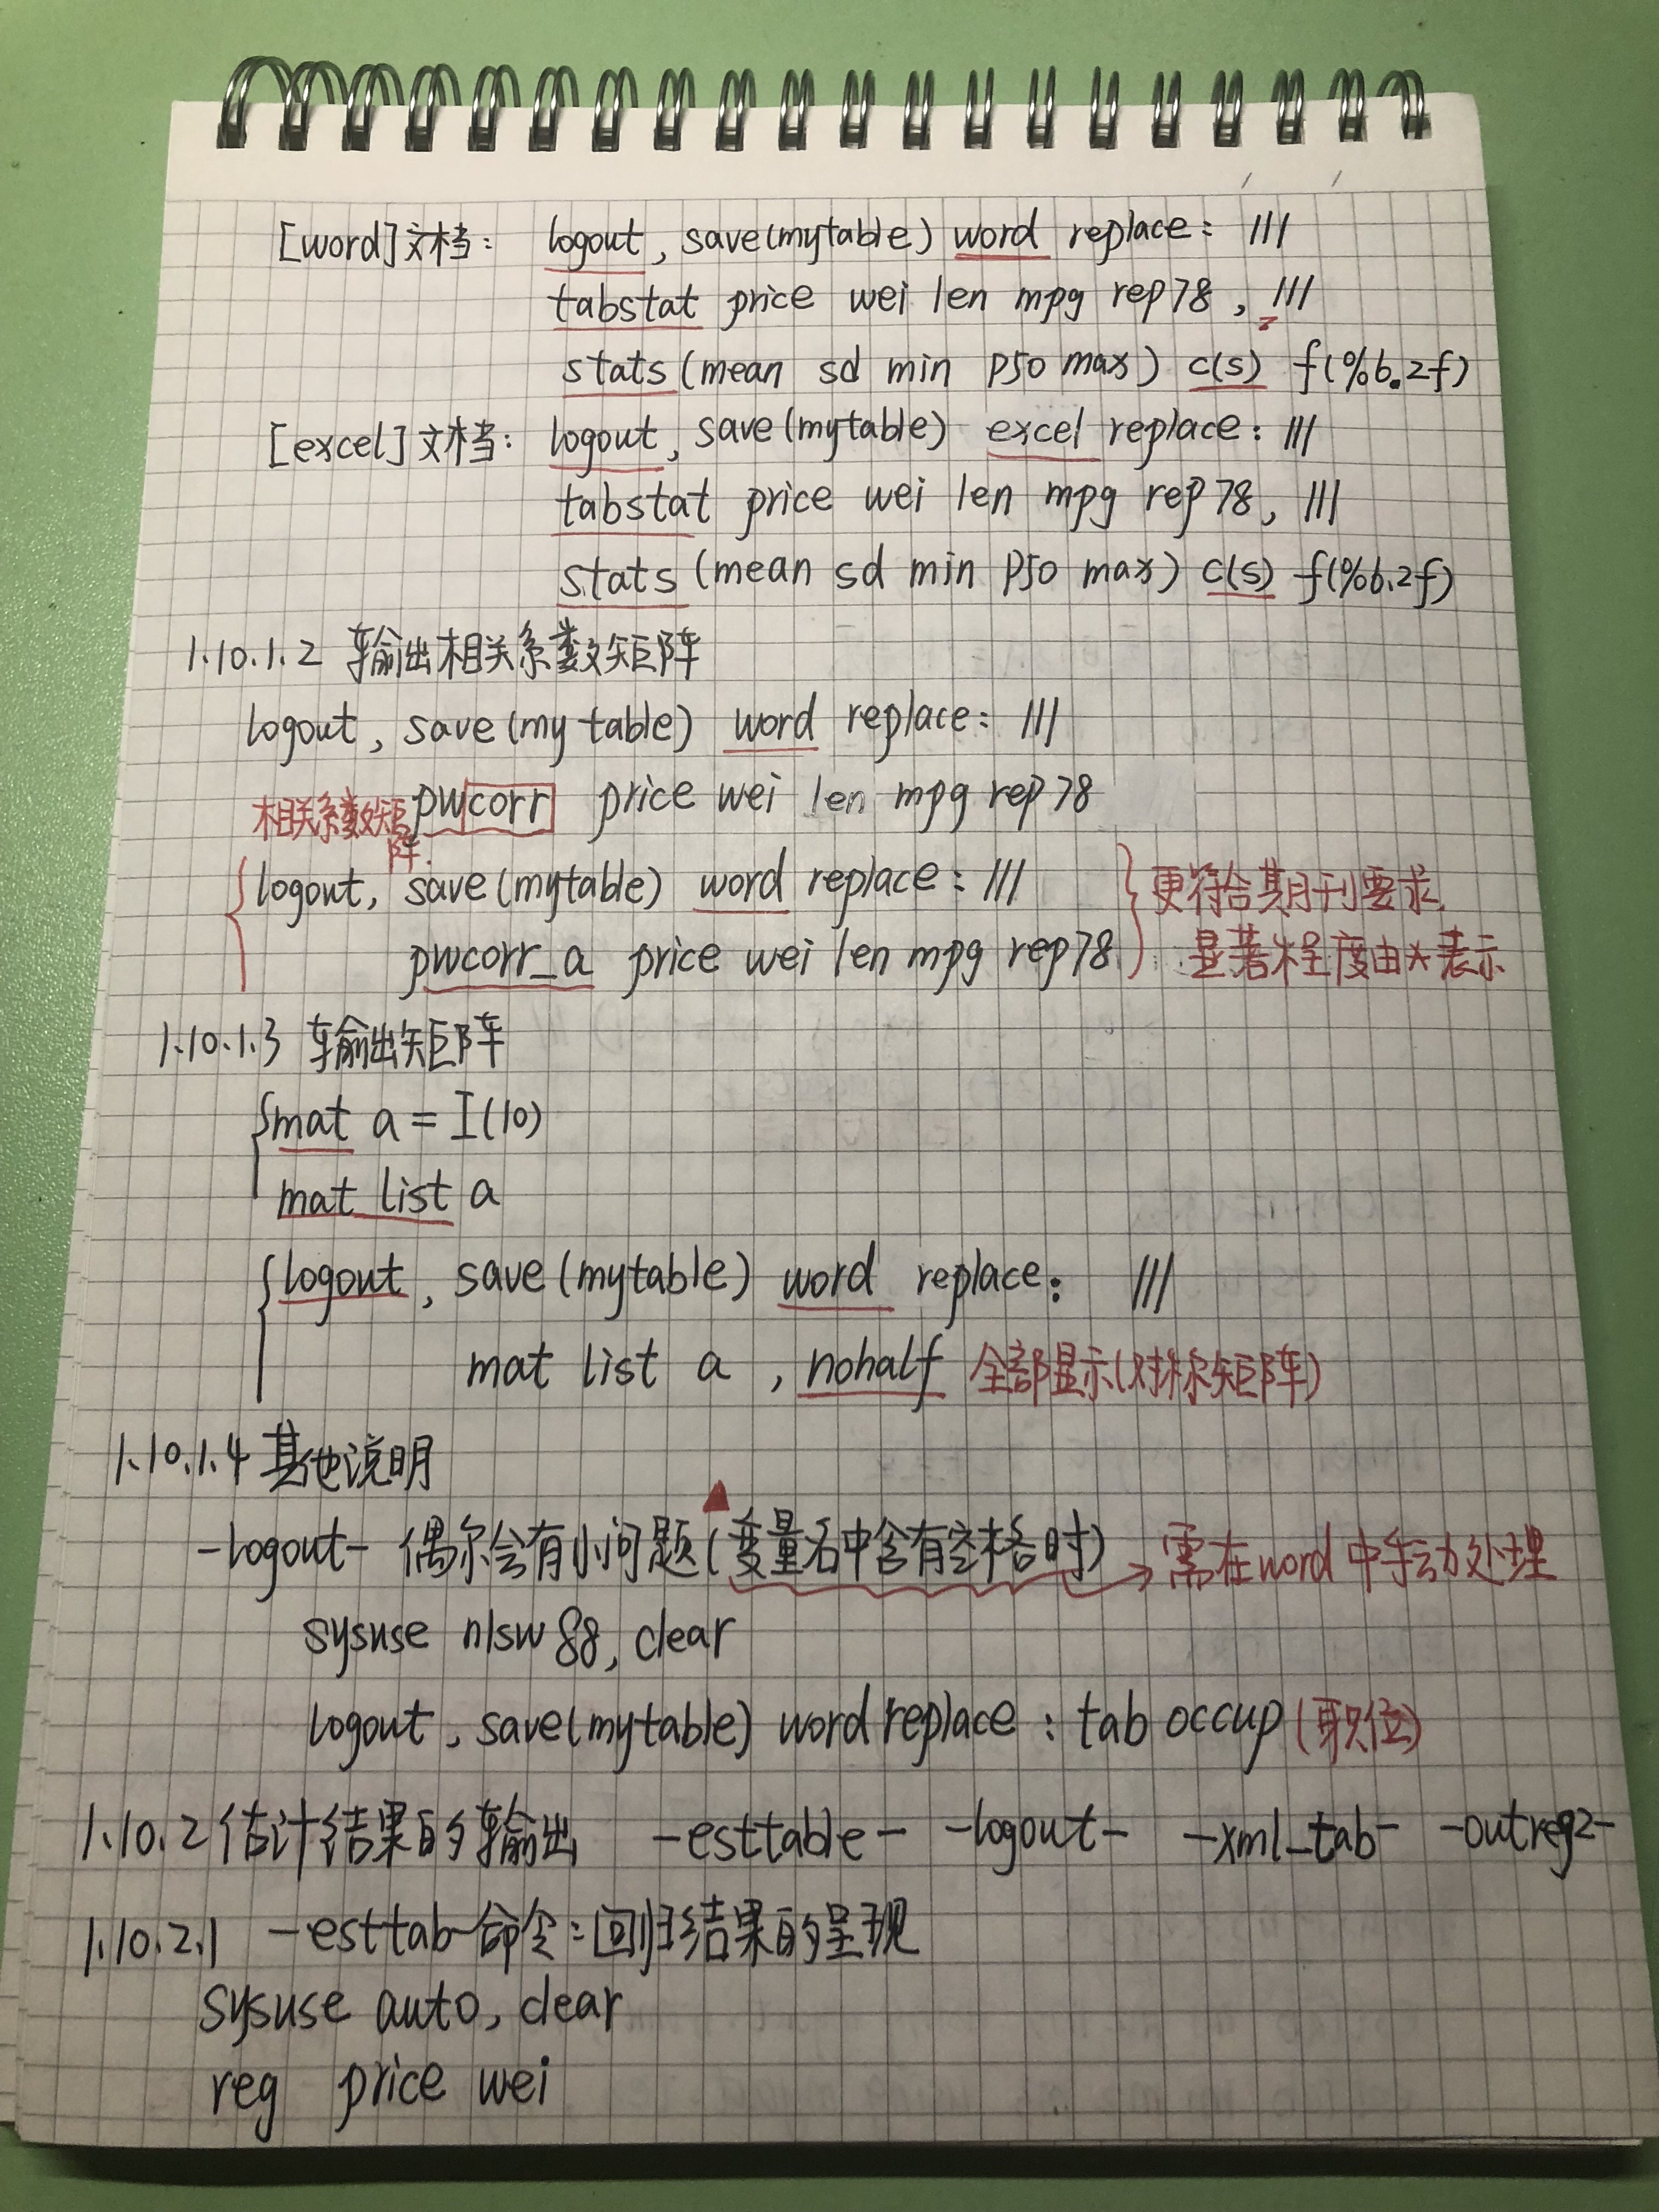 [word]文档: logout, save(mytable) word replace: ///
tabstat price wei len mpg rep78, ///
stats(mean sd min p50 max) c(s) f(%6.2f)
[excel]文档: logout, save(mytable) excel replace: ///
tabstat price wei len mpg rep78, ///
stats(mean sd min p50 max) c(s) f(%6.2f)
1.10.1.2 输出相关系数矩阵
logout, save(mytable) word replace: ///
相关系数矩阵. pwcorr price wei len mpg rep78
logout, save(mytable) word replace: /// 更符合期刊要求,
pwcorr_a price wei len mpg rep78 显著程度由*表示
1.10.1.3 输出矩阵
mat a = I(10)
mat list a
logout, save(mytable) word replace: ///
mat list a , nohalf 全部显示(对称矩阵)
1.10.1.4 其他说明
-logout- 偶尔会有小问题(变量名中含有空格时) → 需在word中手动处理
sysuse nlsw88, clear
logout, save(mytable) word replace : tab occup (职位)
1.10.2 估计结果的输出 -esttable- -logout- -xml_tab- -outreg2-
1.10.2.1 -esttab-命令:回归结果的呈现
sysuse auto, clear
reg price wei